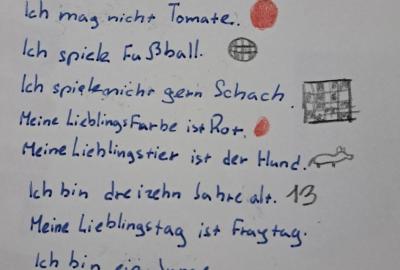 Ich mag nicht Tomate.
Ich spiele Fußball.
Ich spiele nicht gern Schach.
Meine Lieblingsfarbe ist Rot.
Meine Lieblingstier ist der Hund.
Ich bin dreizehn Jahre alt. 13
Meine Lieblingstag ist Fraytag.
Ich bin ein